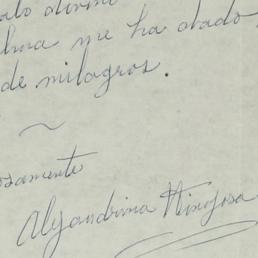 ato divino
me ha atado
de milagros.
samente
Alejandrina Hinojosa